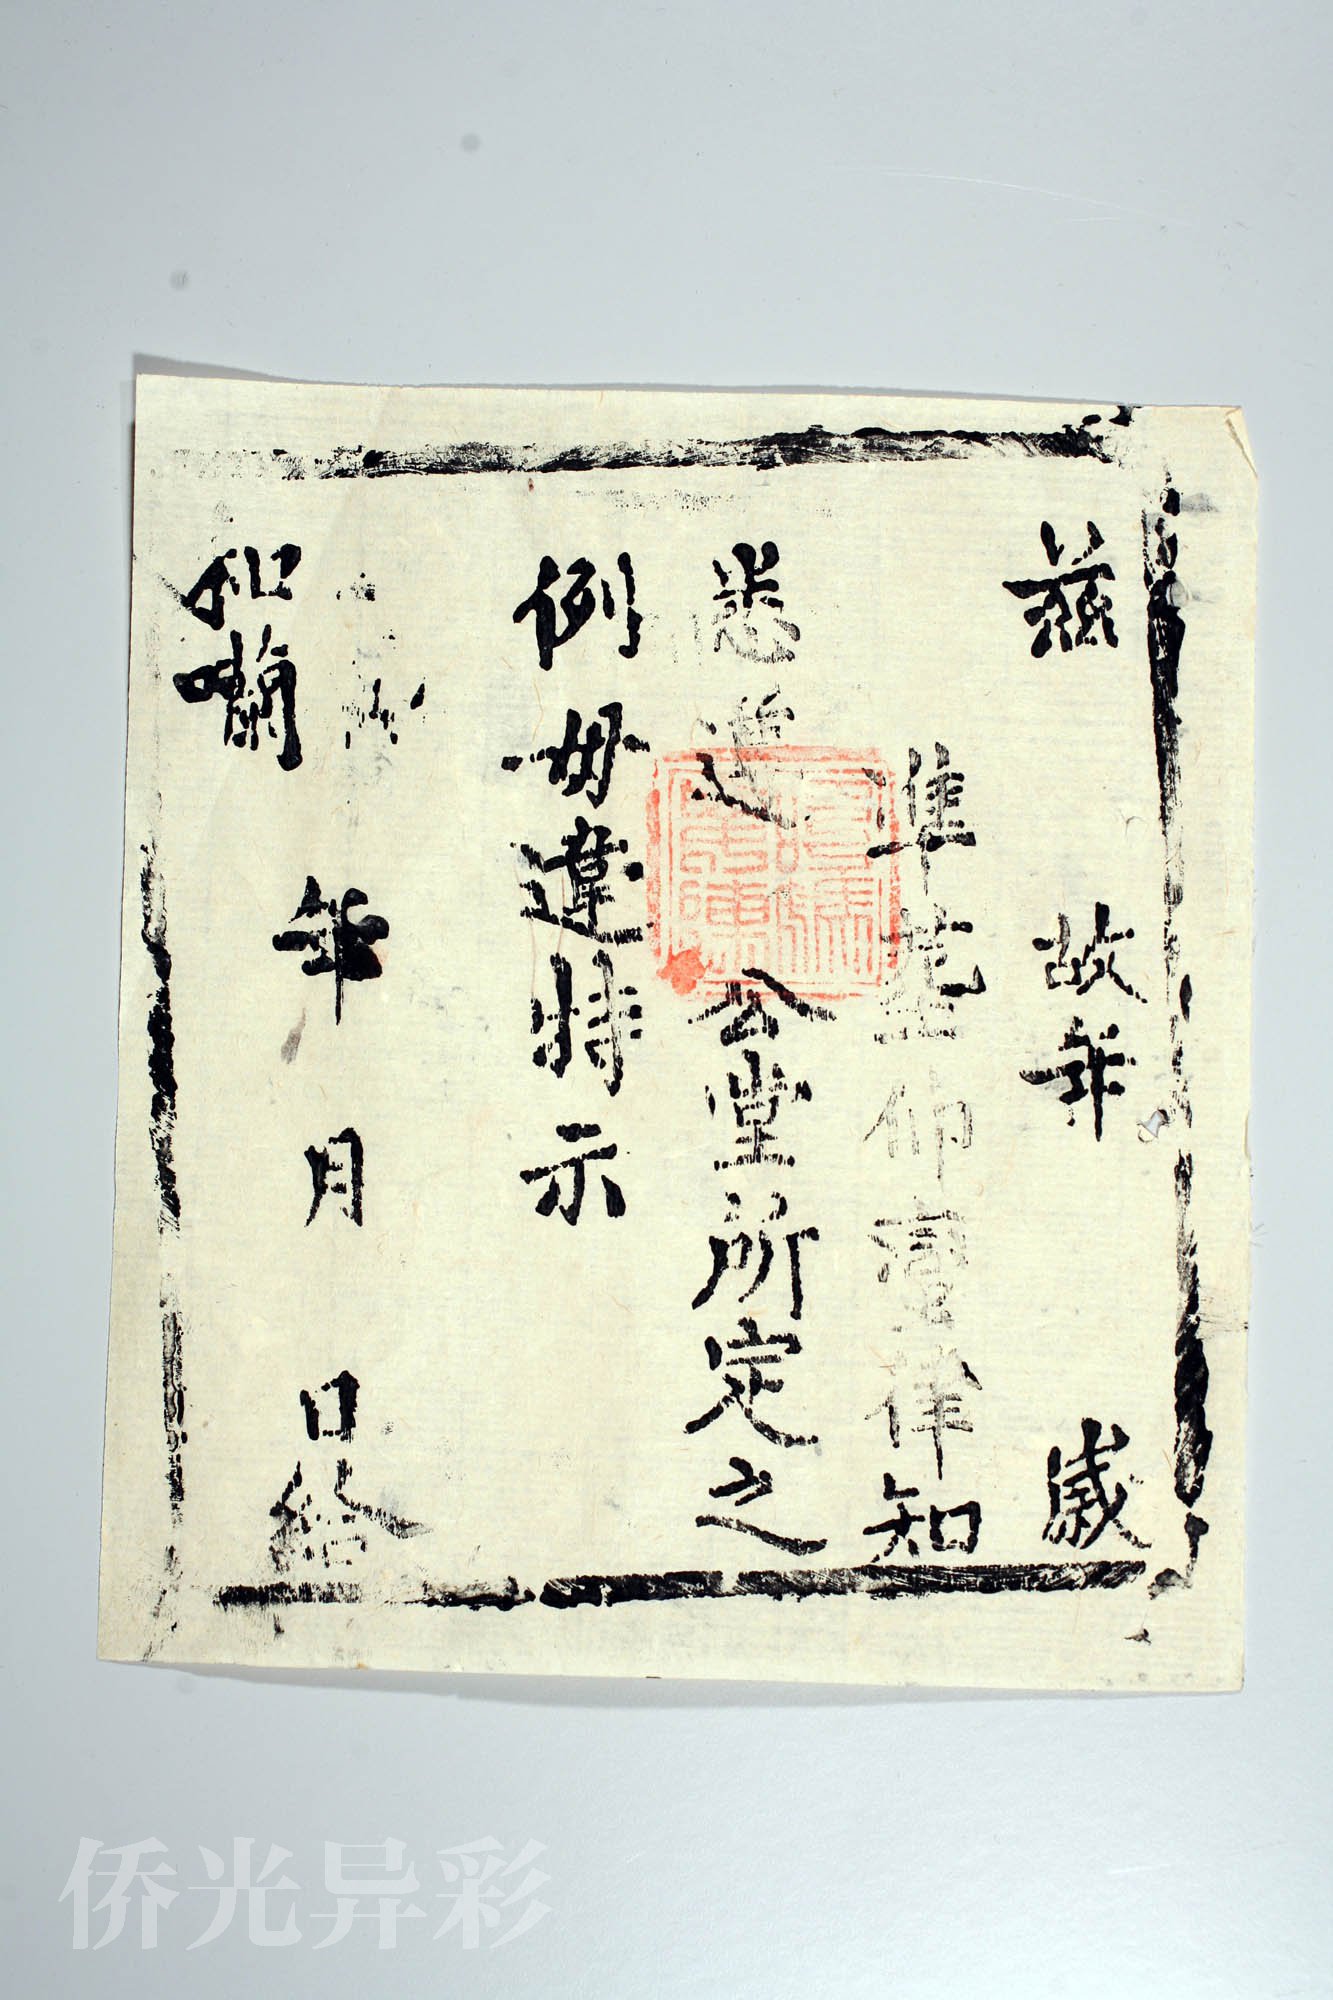 茲 故年 歲
準葬仰塚律知
悉遵 公堂所定之
例毋違特示
年 月 日給
和囒
侨光异彩